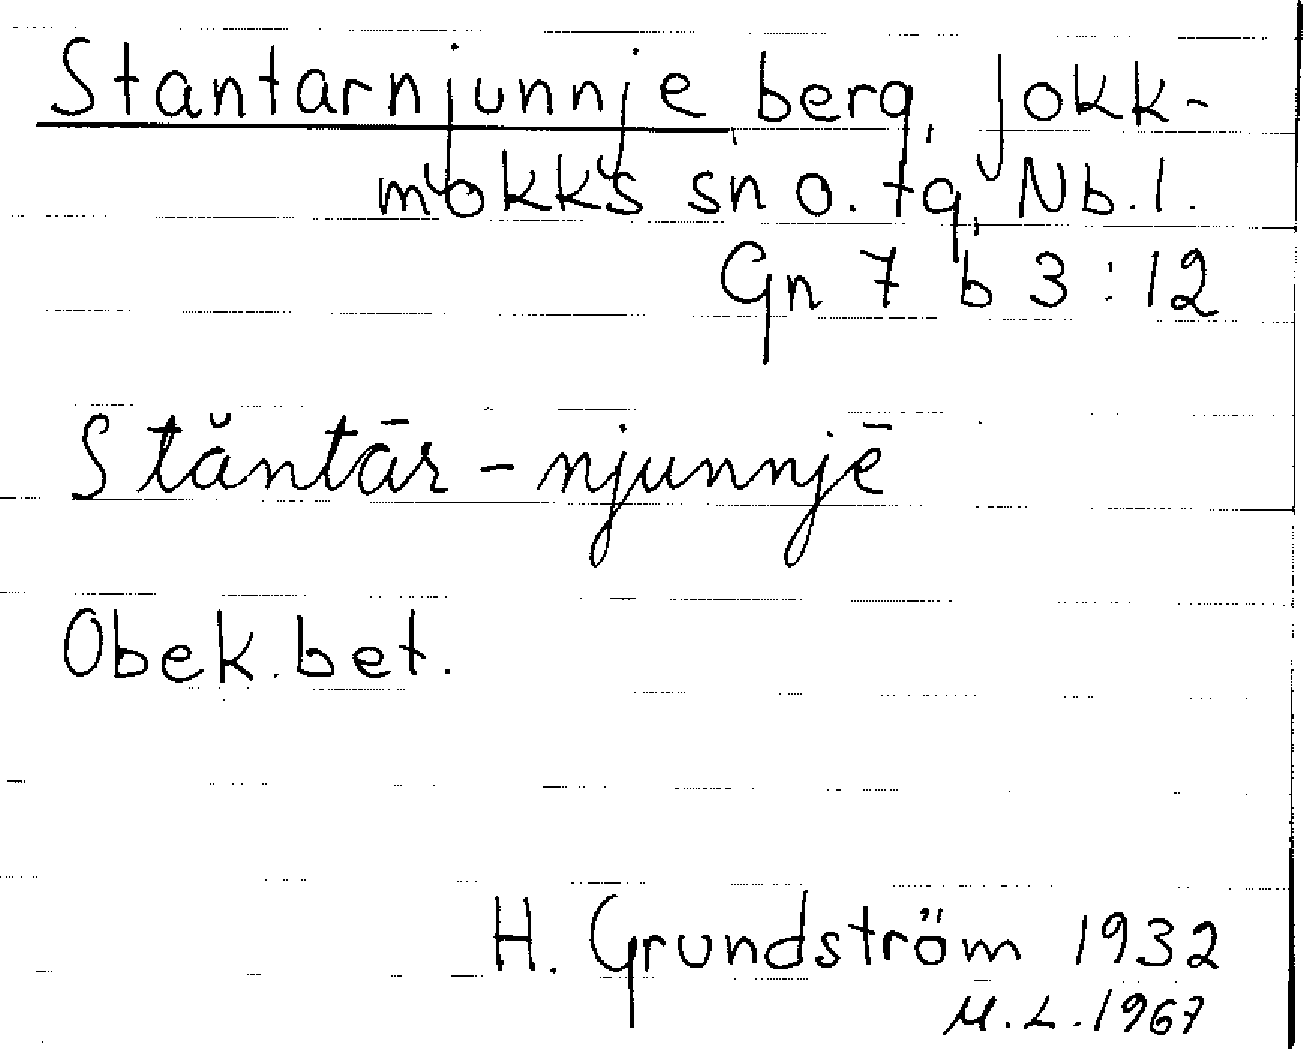 Stantarnjunnje berg, Jokk-
mokks sn o. tg, Nb.l.
Gn 7 b 3:12
Stăntār-njunnjē
Obek. bet.
H. Grundström 1932
M.L. 1967